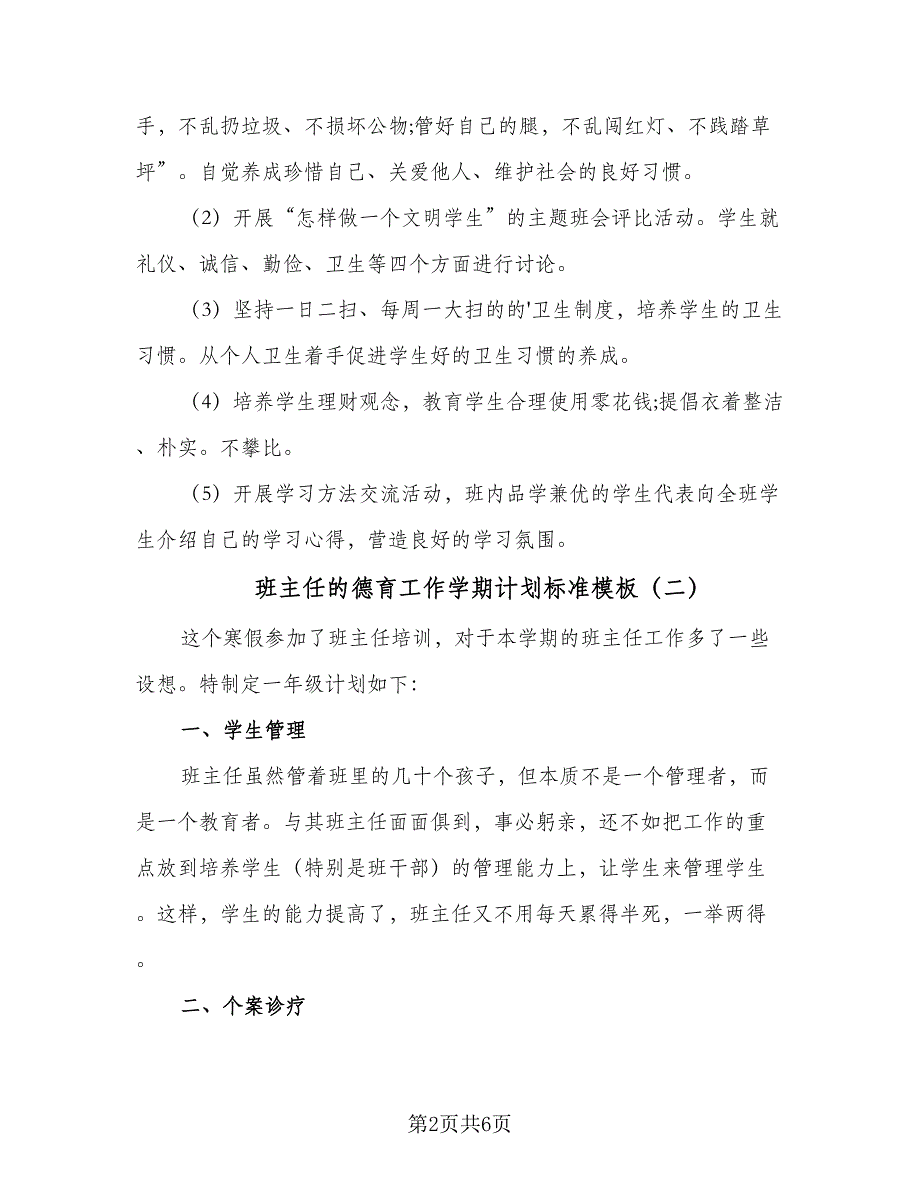 手，不乱扔垃圾、不损坏公物;管好自己的腿，不乱闯红灯、不践踏草
坪”。自觉养成珍惜自己、关爱他人、维护社会的良好习惯。
（2）开展“怎样做一个文明学生”的主题班会评比活动。学生就
礼仪、诚信、勤俭、卫生等四个方面进行讨论。
（3）坚持一日二扫、每周一大扫的的'卫生制度，培养学生的卫生
习惯。从个人卫生着手促进学生好的卫生习惯的养成。
（4）培养学生理财观念，教育学生合理使用零花钱;提倡衣着整洁
、朴实。不攀比。
（5）开展学习方法交流活动，班内品学兼优的学生代表向全班学
生介绍自己的学习心得，营造良好的学习氛围。
班主任的德育工作学期计划标准模板（二）
这个寒假参加了班主任培训，对于本学期的班主任工作多了一些
设想。特制定一年级计划如下：
一、学生管理
班主任虽然管着班里的几十个孩子，但本质不是一个管理者，而
是一个教育者。与其班主任面面俱到，事必躬亲，还不如把工作的重
点放到培养学生（特别是班干部）的管理能力上，让学生来管理学生
。这样，学生的能力提高了，班主任又不用每天累得半死，一举两得
。
二、个案诊疗
第2页共6页